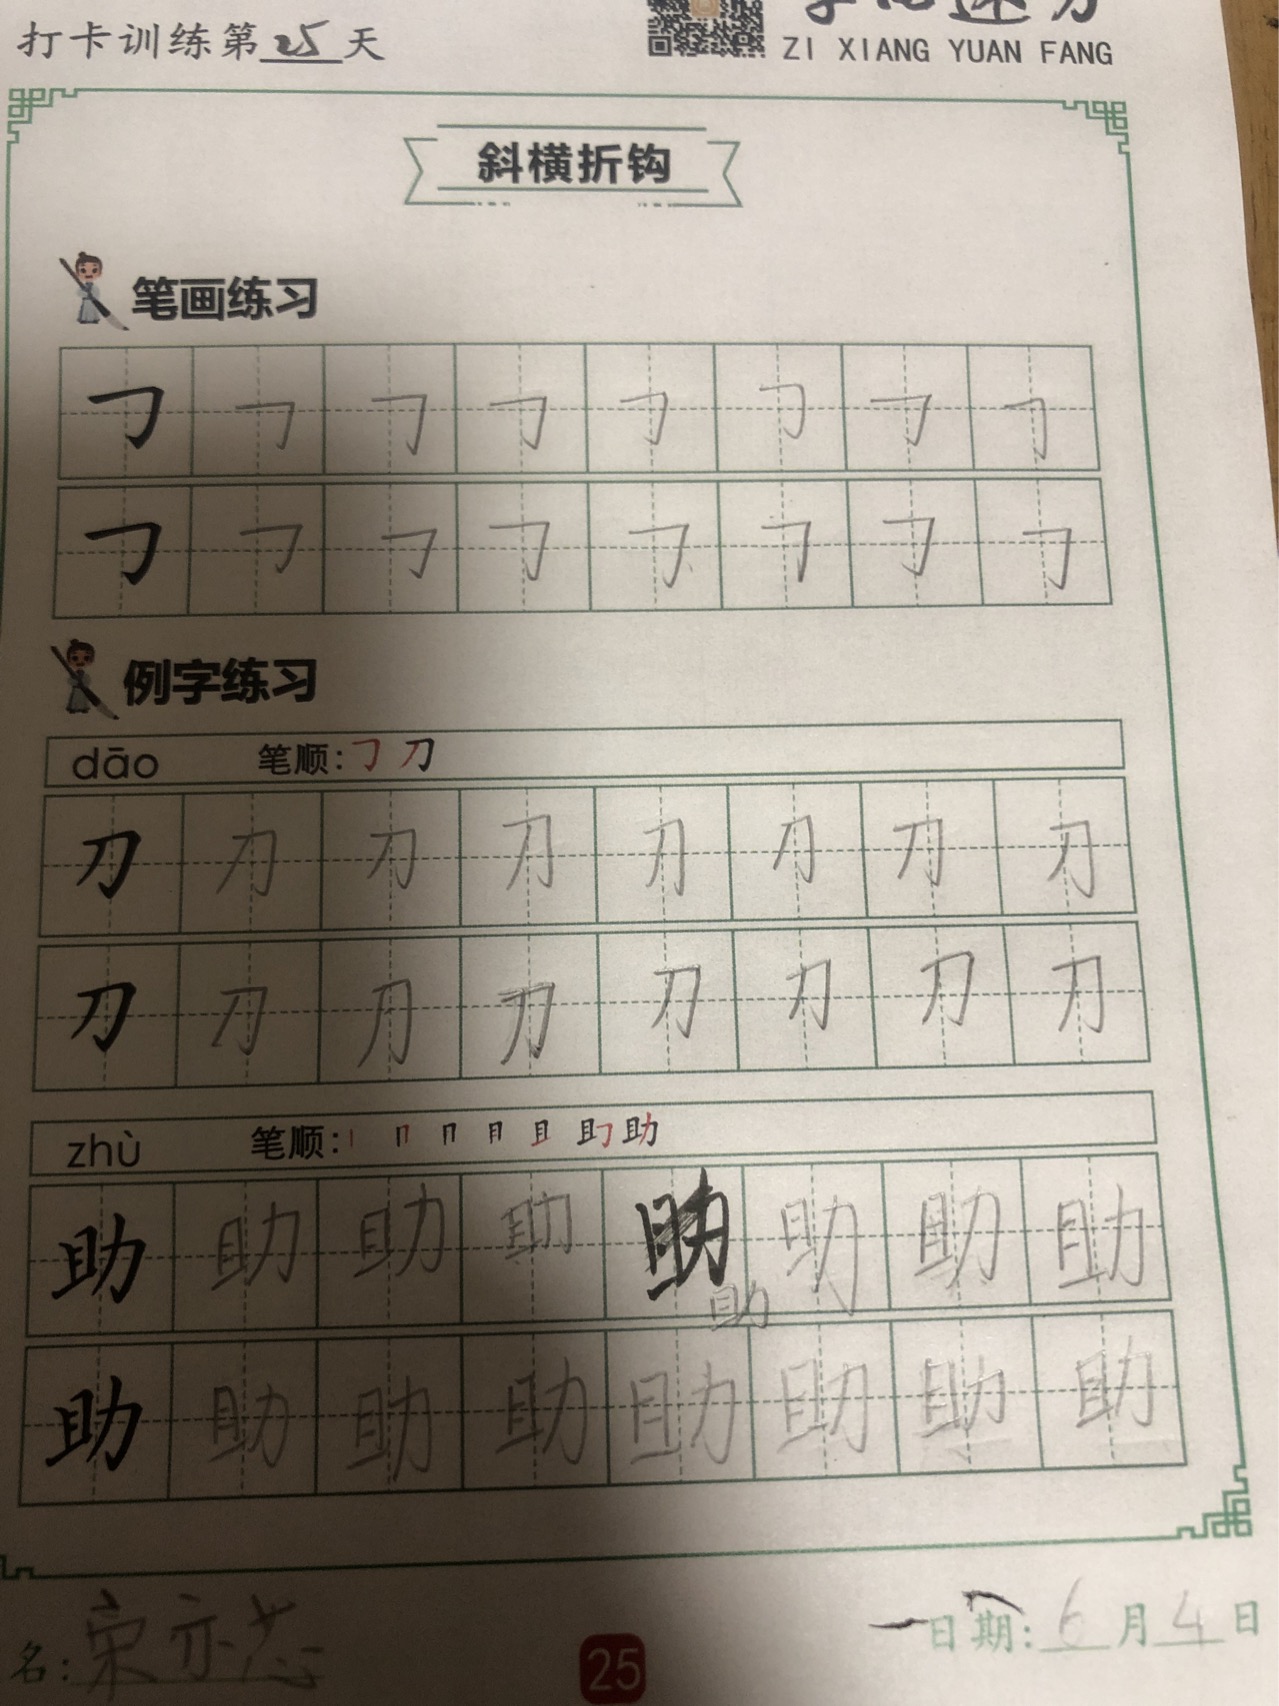 打卡训练第25天
ZI XIANG YUAN FANG
斜横折钩
笔画练习
㇆ ㇆ ㇆ ㇆ ㇆ ㇆ ㇆ ㇆
㇆ ㇆ ㇆ ㇆ ㇆ ㇆ ㇆ ㇆
例字练习
dāo 笔顺:㇆ 刀
刀 刀 刀 刀 刀 刀 刀 刀
刀 刀 刀 刀 刀 刀 刀 刀
zhù 笔顺:丨 冂 冂 月 且 助 助
助 助 助 助 助 助 助 助
助
助 助 助 助 助 助 助 助
名:宋亦芯
25
日期:6月4日